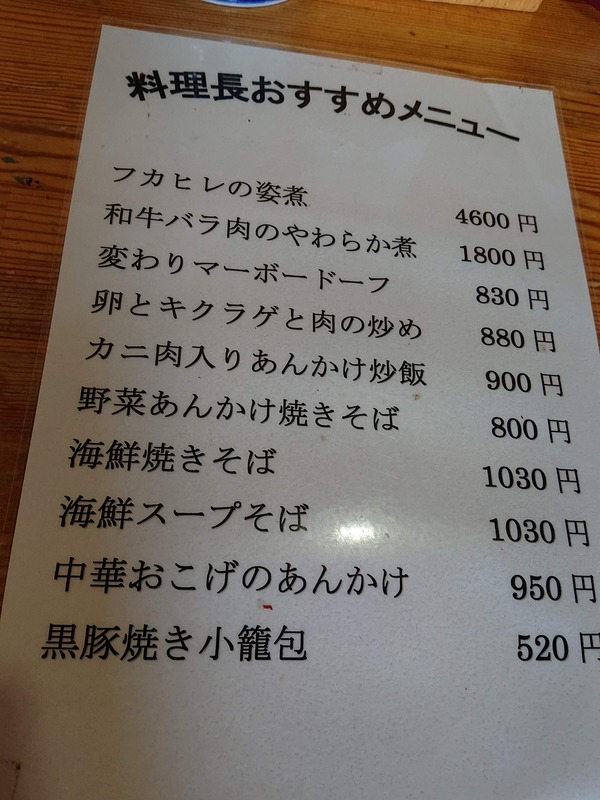 料理長おすすめメニュー
フカヒレの姿煮 4600円
和牛バラ肉のやわらか煮 1800円
変わりマーボードーフ 830円
卵とキクラゲと肉の炒め 880円
カニ肉入りあんかけ炒飯 900円
野菜あんかけ焼きそば 800円
海鮮焼きそば 1030円
海鮮スープそば 1030円
中華おこげのあんかけ 950円
黒豚焼き小籠包 520円